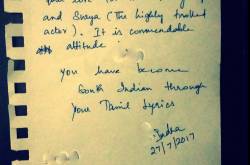 and Surya (the highly trolled
actor). It is commendable
attitude
You have become
South Indian through
your Tamil Lyrics
Indra
27/7/2017